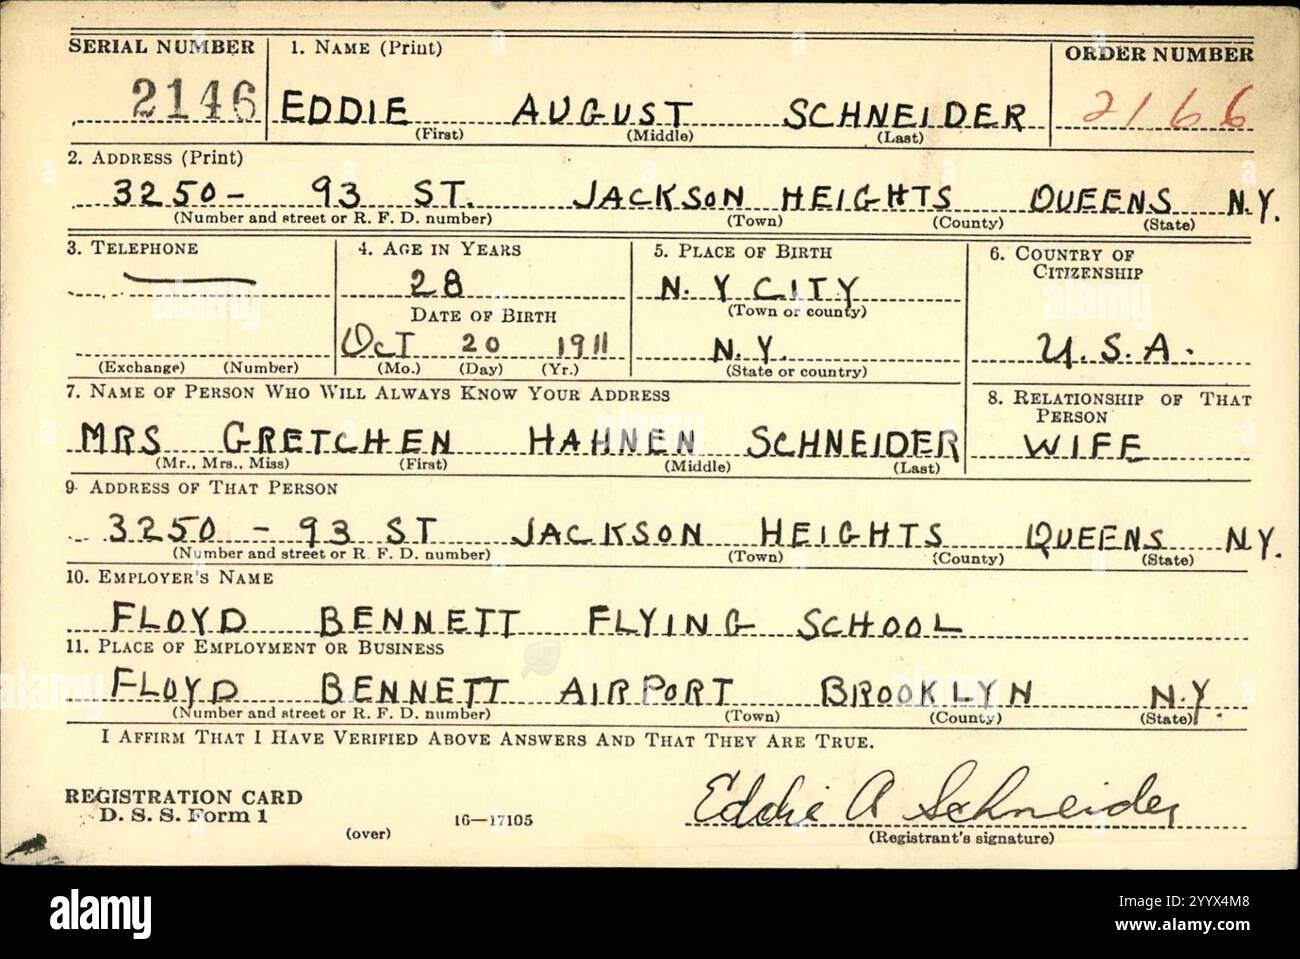 SERIAL NUMBER 1. NAME (Print) ORDER NUMBER
2146 EDDIE AUGUST SCHNEIDER 2166
(First) (Middle) (Last)
2. ADDRESS (Print)
3250- 93 ST. JACKSON HEIGHTS QUEENS N.Y.
(Number and street or R. F. D. number) (Town) (County) (State)
3. TELEPHONE 4. AGE IN YEARS 5. PLACE OF BIRTH 6. COUNTRY OF
CITIZENSHIP
28 N. Y CITY
DATE OF BIRTH (Town or county)
Oct 20 1911 N.Y. U.S.A.
(Exchange) (Number) (Mo.) (Day) (Yr.) (State or country)
7. NAME OF PERSON WHO WILL ALWAYS KNOW YOUR ADDRESS 8. RELATIONSHIP OF THAT
PERSON
MRS GRETCHEN HAHNEN SCHNEIDER WIFE
(Mr., Mrs., Miss) (First) (Middle) (Last)
9. ADDRESS OF THAT PERSON
3250 - 93 ST JACKSON HEIGHTS QUEENS N.Y.
(Number and street or R. F. D. number) (Town) (County) (State)
10. EMPLOYER'S NAME
FLOYD BENNETT FLYING SCHOOL
11. PLACE OF EMPLOYMENT OR BUSINESS
FLOYD BENNETT AIRPORT BROOKLYN N.Y.
(Number and street or R. F. D. number) (Town) (County) (State)
I AFFIRM THAT I HAVE VERIFIED ABOVE ANSWERS AND THAT THEY ARE TRUE.
REGISTRATION CARD Eddie A Schneider
D. S. S. Form 1 (over) 16—17105 (Registrant's signature)
alamy
Image ID: 2YYX4M8
www.alamy.com